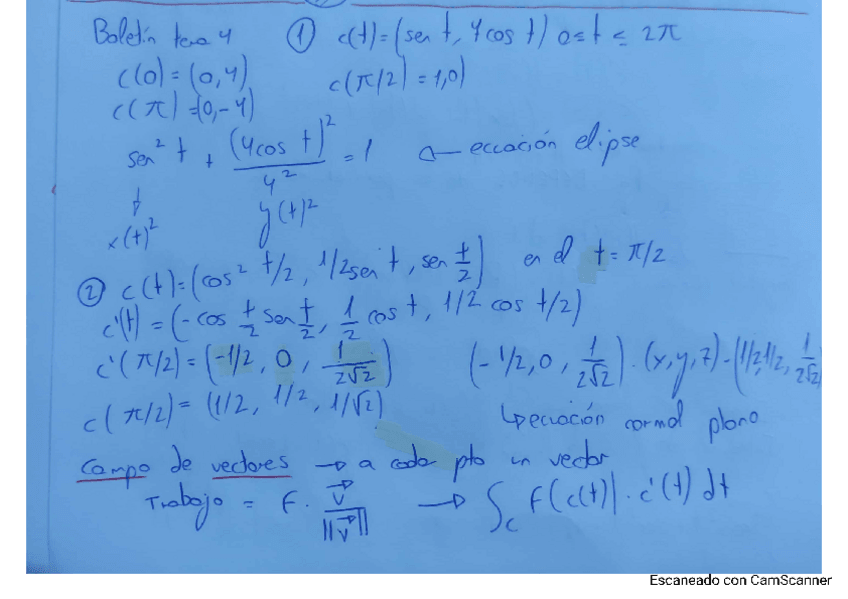 Boletín tema 4 ① c(t)=(sen t, 4cos t) 0≤t≤2π
c(0)=(0,4) c(π/2)=1,0)
c(π)=(0,-4)
sen² t + (4cos t)²/4² = 1 ← ecuación elipse
x(t)² y(t)²
② c(t)=(cos² t/2, 1/2sen t, sen t/2) en el t=π/2
c'(t)=(-cos t/2 sen t/2, 1/2 cos t, 1/2 cos t/2)
c'(π/2)=(-1/2, 0, 1/2√2) (-1/2,0, 1/2√2)·(x,y,z)-(1/2,1/2, 1/2√2)
c(π/2)=(1/2, 1/2, 1/√2) ↳ecuación normal plano
Campo de vectores → a cada pto un vector
Trabajo = F· v/||v|| → ∫c F(c(t))·c'(t) dt
Escaneado con CamScanner